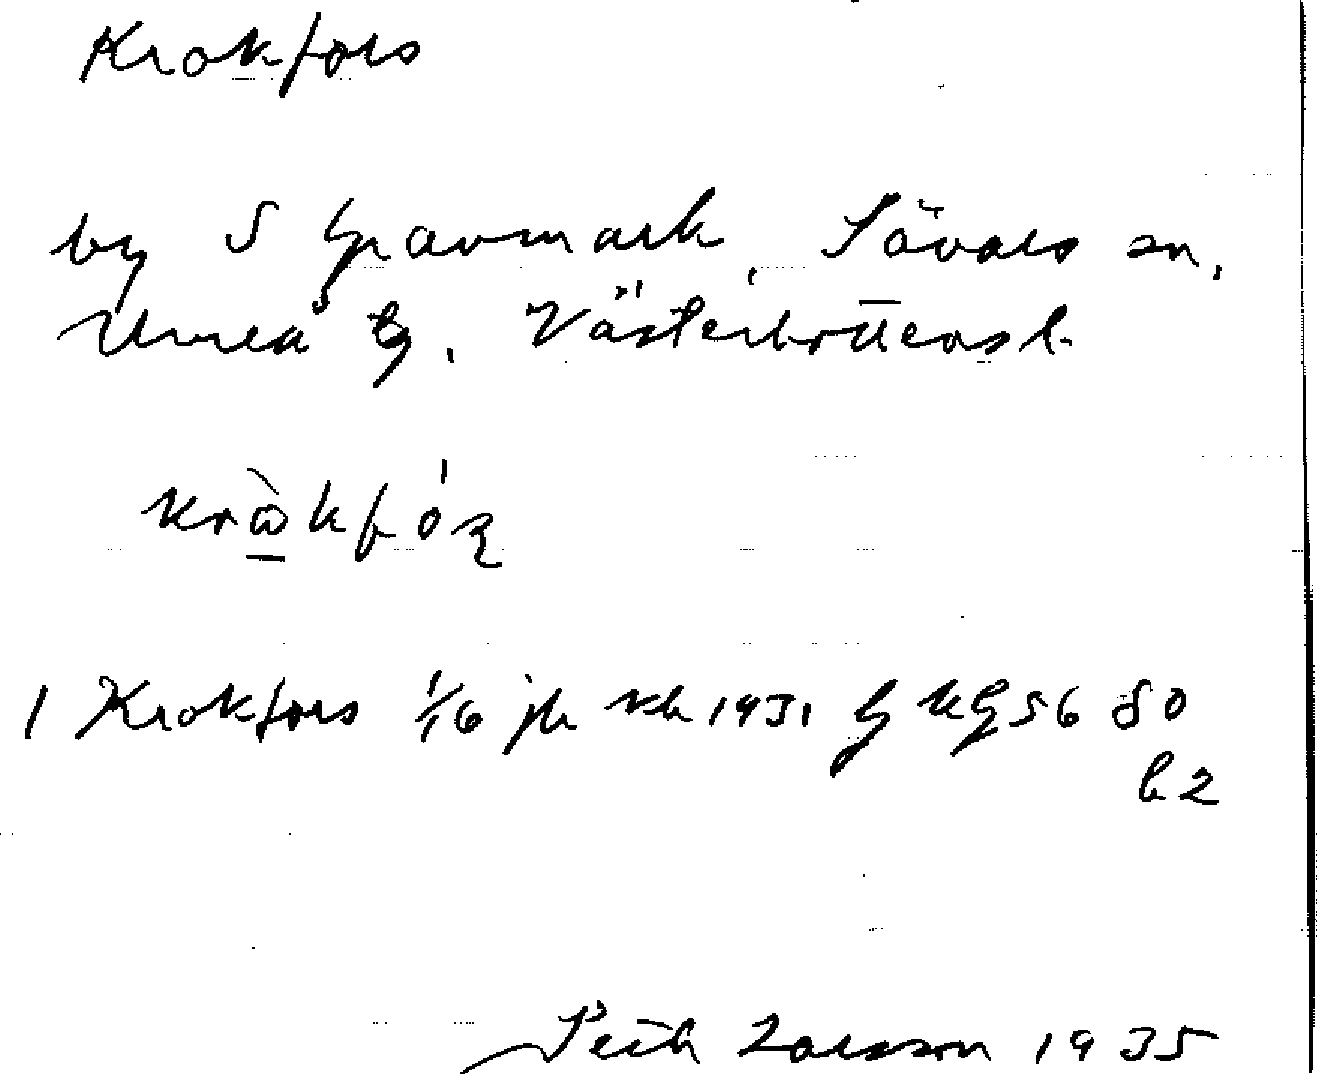 Krokfors
by S Gravmark, Sävars sn,
Umeå tg, Västerbottens l.
krὼ̲kfóʂ
1 Krokfors 1/16 jb kb 1931 G kg 56 80
b2
Petrus Larsson 1935